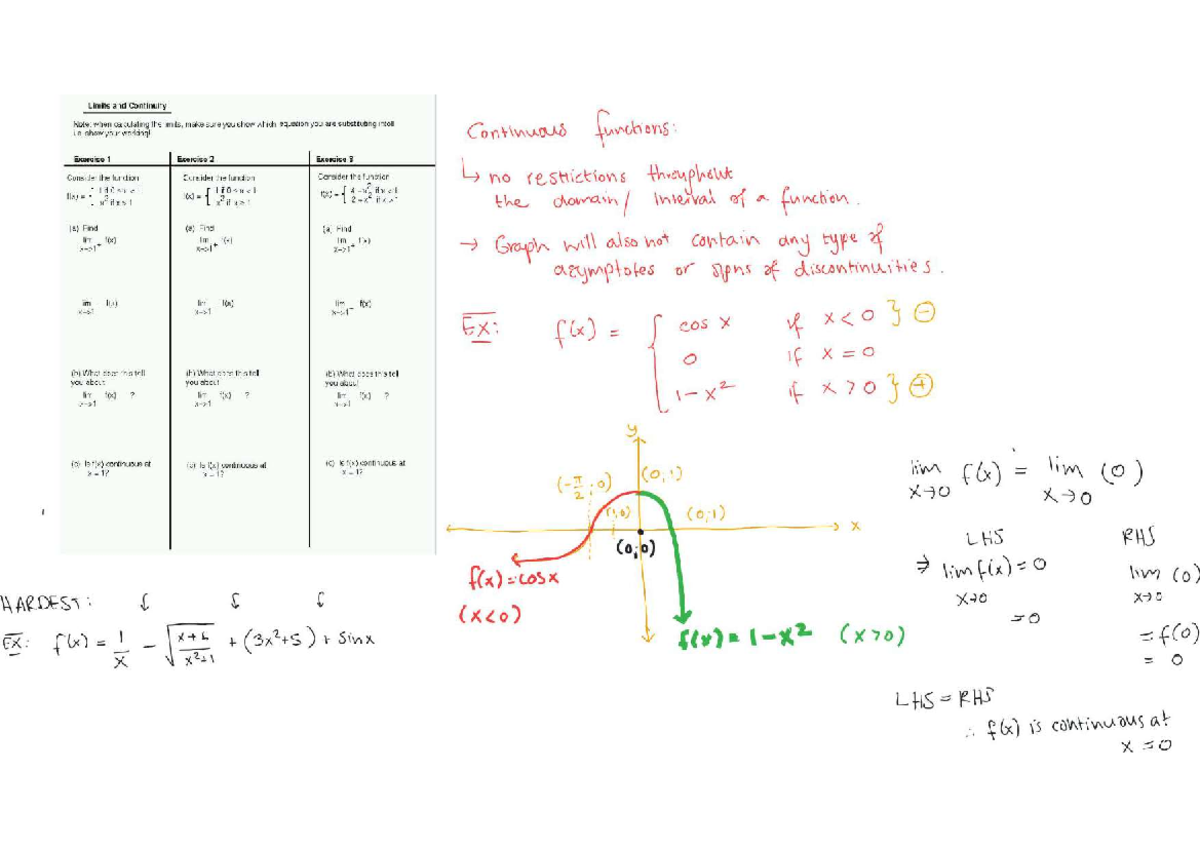 Limits and Continuity
Note: when calculating the limits, make sure you show which equation you are substituting into!!
i.e. show your working!
Exercise 1
Consider the function
(a) Find
lim f(x)
x->1+
lim f(x)
x->1
(b) What does this tell
you about
lim f(x) ?
x->1
(c) Is f(x) continuous at
x = 1?
Exercise 2
Consider the function
f(x) = { 1 if 0 < x < 1
x² if x ≥ 1
(a) Find
lim f(x)
x->1+
lim f(x)
x->1
(b) What does this tell
you about
lim f(x) ?
x->1
(c) Is f(x) continuous at
x = 1?
Exercise 3
Consider the function
(a) Find
lim f(x)
x->1+
lim f(x)
x->1-
(b) What does this tell
you about
lim f(x) ?
x->1
(c) Is f(x) continuous at
x = 1?
Continuous functions:
↳ no restrictions throughout
the domain/ interval of a function.
→ Graph will also not contain any type of
asymptotes or signs of discontinuities.
EX: f(x) = { cos x if x < 0 } ⊖
0 if x = 0
1 - x² if x > 0 } ⊕
y
(-π/2 ; 0) (0;1)
(1;0) (0;1)
x
(0;0)
f(x) = cos x
(x<0)
f(x) = 1 - x² (x>0)
lim f(x) = lim (0)
x→0 x→0
LHS RHS
⇒ lim f(x) = 0 lim (0)
x→0 x→0
= 0 = f(0)
= 0
LHS = RHS
∴ f(x) is continuous at
x = 0
HARDEST: ↓ ↓ ↓
EX: f(x) = 1/x - √((x+6)/(x²+1)) + (3x²+5) + sin x